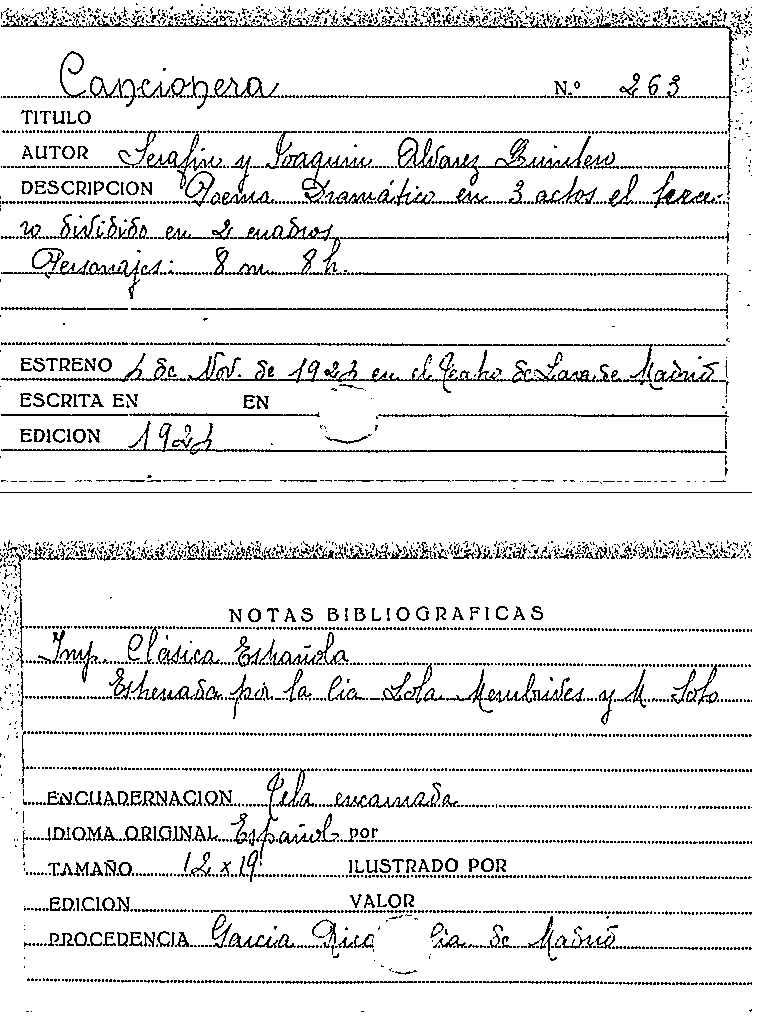 Cancionera N.º 263
TITULO
AUTOR Serafin y Joaquin Alvarez Quintero
DESCRIPCION Poema Dramático en 3 actos el terce-
ro dividido en 2 cuadros
Personajes: 8 m 8 h.
ESTRENO 4 de Nov. de 1924 en el Teatro de Lara de Madrid
ESCRITA EN EN
EDICION 1924
NOTAS BIBLIOGRAFICAS
Imp. Clásica Española
Estrenada por la Cia Lola Membrives y M. Soto
ENCUADERNACION Tela encarnada
IDIOMA ORIGINAL Español por
TAMAÑO 12 x 19 ILUSTRADO POR
EDICION VALOR
PROCEDENCIA Garcia Rico Cia de Madrid